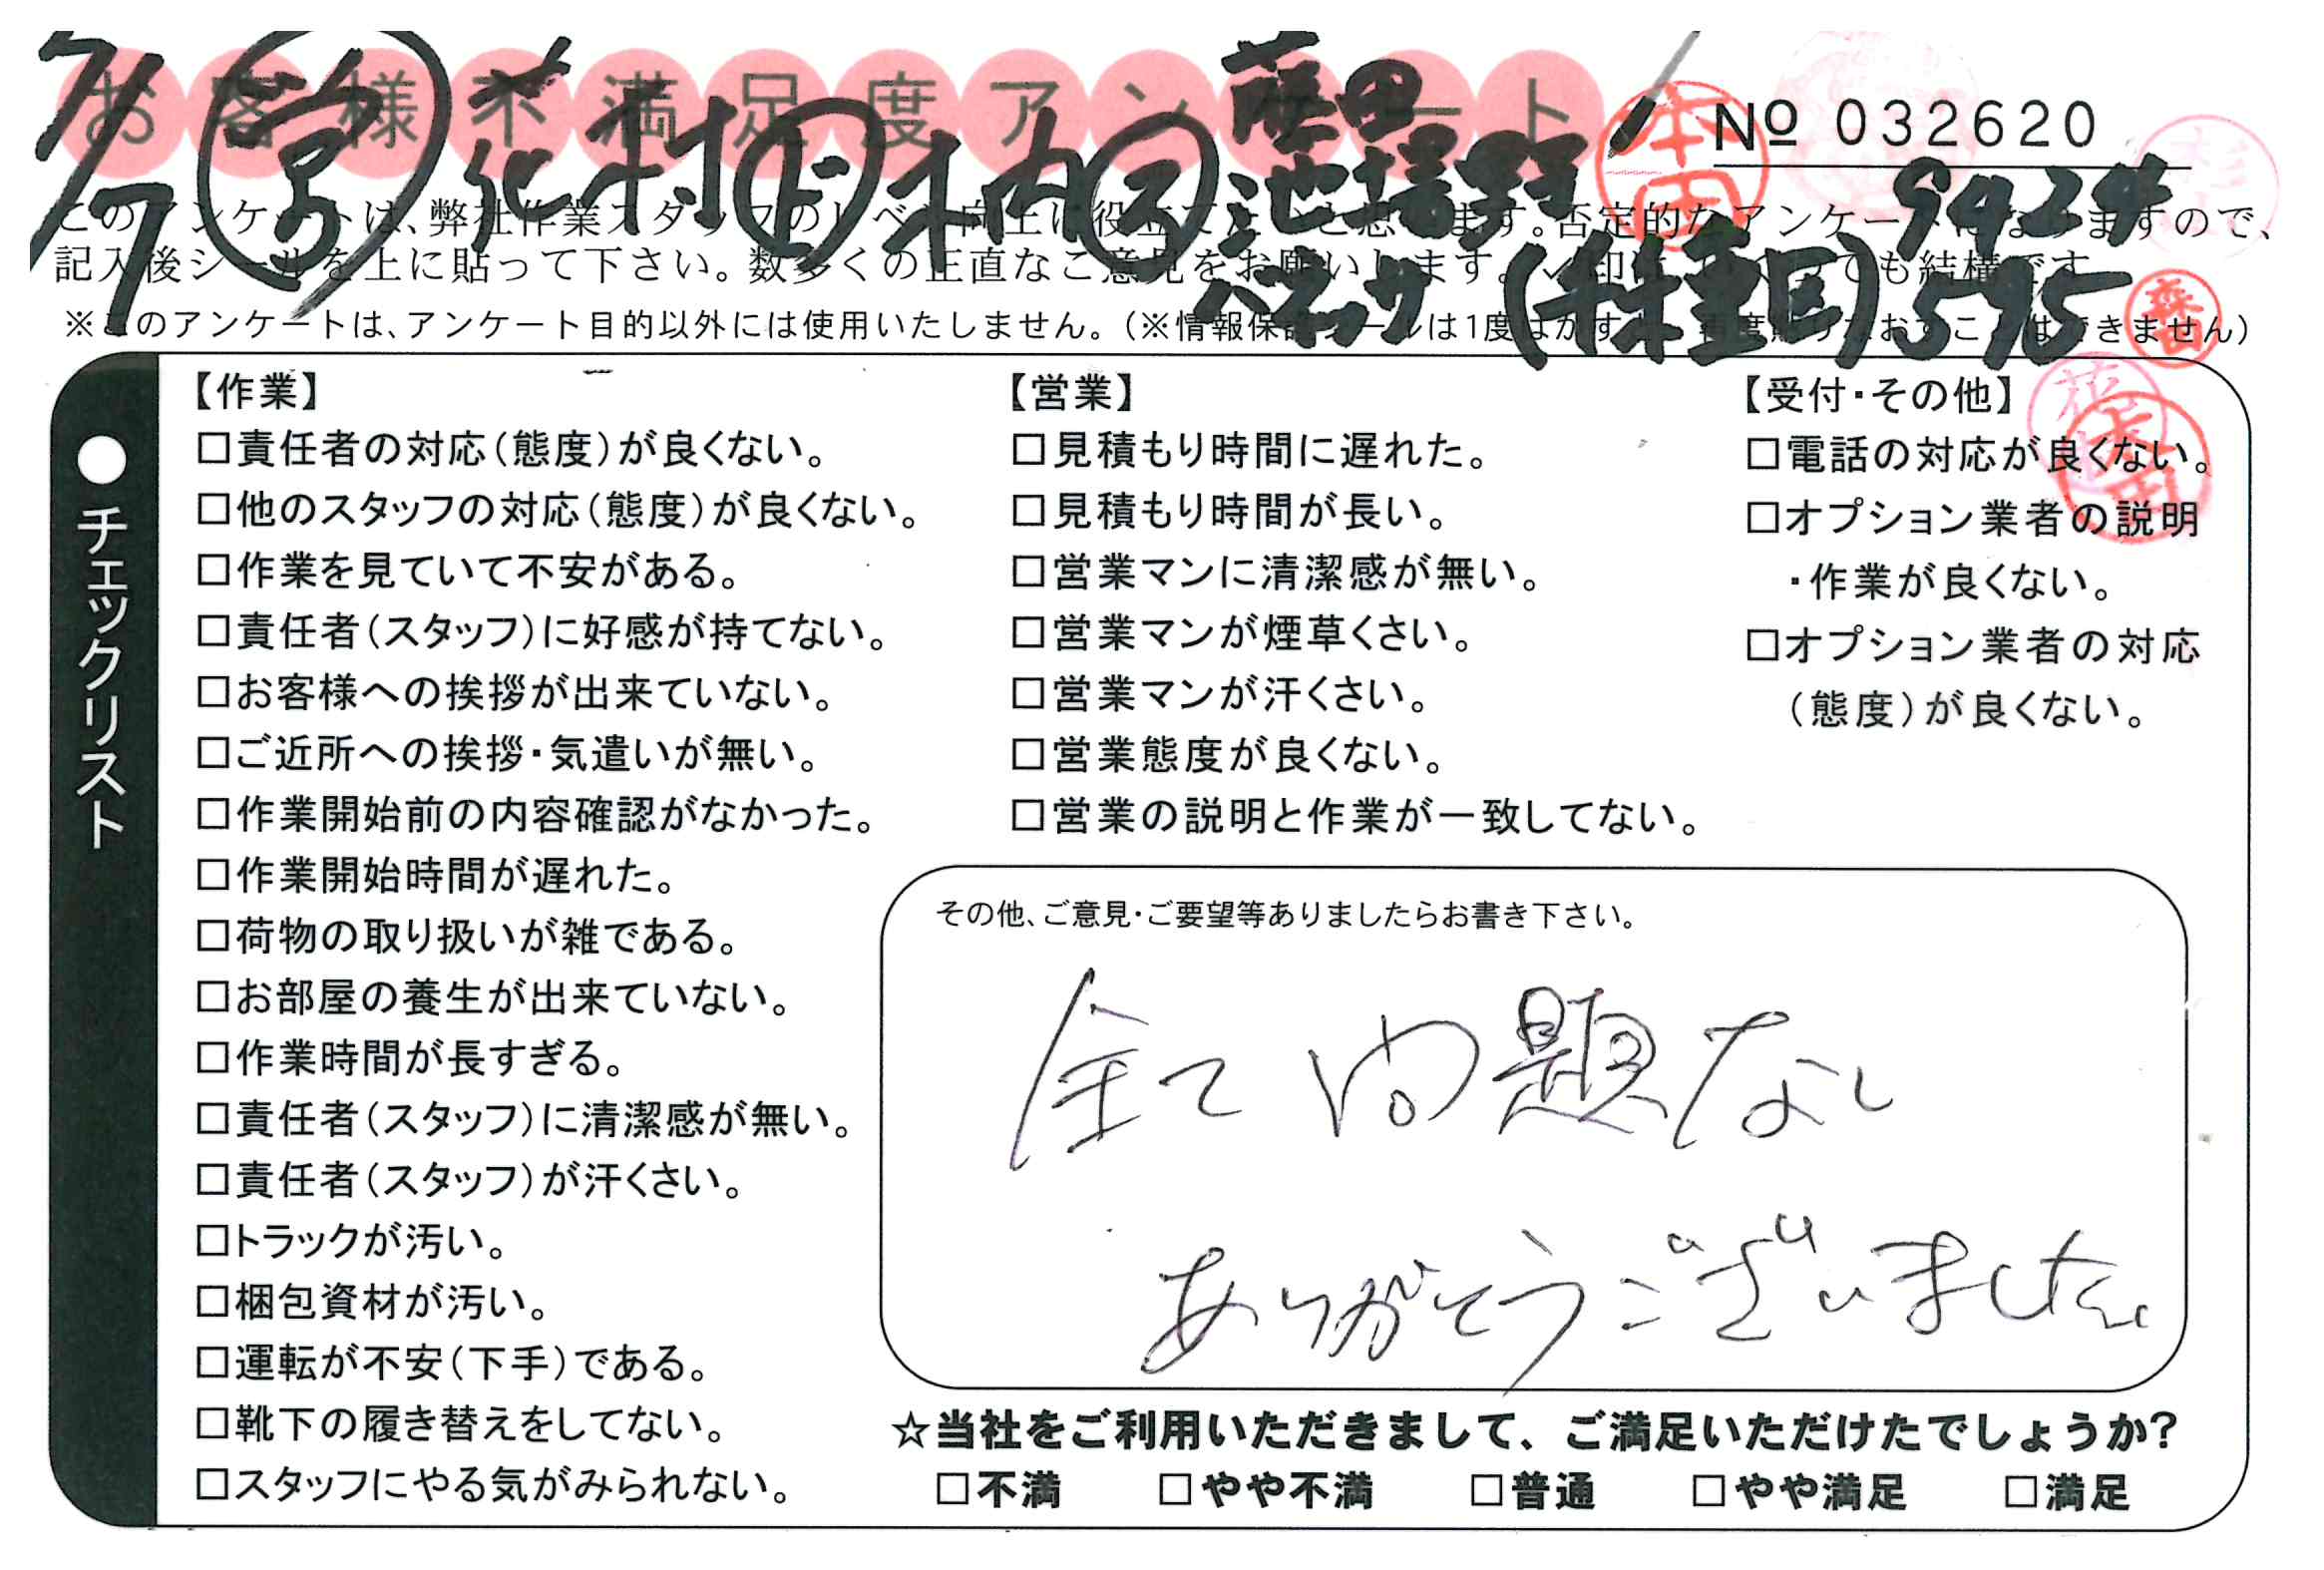 お客様不満足度アンケート
7/7 労 花村 上 木内 ス 藤田
池 揩野
バネッサ (千種区)
№ 032620
9424
595
本田
森田
花村
本田
このアンケートは、弊社作業スタッフのレベル向上に役立てたいと思います。否定的なアンケートになりますので、
記入後シールを上に貼って下さい。数多くの正直なご意見をお願いします。
※このアンケートは、アンケート目的以外には使用いたしません。(※情報保護シールは1度はがすと、再度貼りなおすことはできません)
●チェックリスト
【作業】
□責任者の対応(態度)が良くない。
□他のスタッフの対応(態度)が良くない。
□作業を見ていて不安がある。
□責任者(スタッフ)に好感が持てない。
□お客様への挨拶が出来ていない。
□ご近所への挨拶・気遣いが無い。
□作業開始前の内容確認がなかった。
□作業開始時間が遅れた。
□荷物の取り扱いが雑である。
□お部屋の養生が出来ていない。
□作業時間が長すぎる。
□責任者(スタッフ)に清潔感が無い。
□責任者(スタッフ)が汗くさい。
□トラックが汚い。
□梱包資材が汚い。
□運転が不安(下手)である。
□靴下の履き替えをしてない。
□スタッフにやる気がみられない。
【営業】
□見積もり時間に遅れた。
□見積もり時間が長い。
□営業マンに清潔感が無い。
□営業マンが煙草くさい。
□営業マンが汗くさい。
□営業態度が良くない。
□営業の説明と作業が一致してない。
【受付・その他】
□電話の対応が良くない。
□オプション業者の説明
・作業が良くない。
□オプション業者の対応
(態度)が良くない。
その他、ご意見・ご要望等ありましたらお書き下さい。
全て問題なし
ありがとうございました。
☆当社をご利用いただきまして、ご満足いただけたでしょうか?
□不満 □やや不満 □普通 □やや満足 □満足